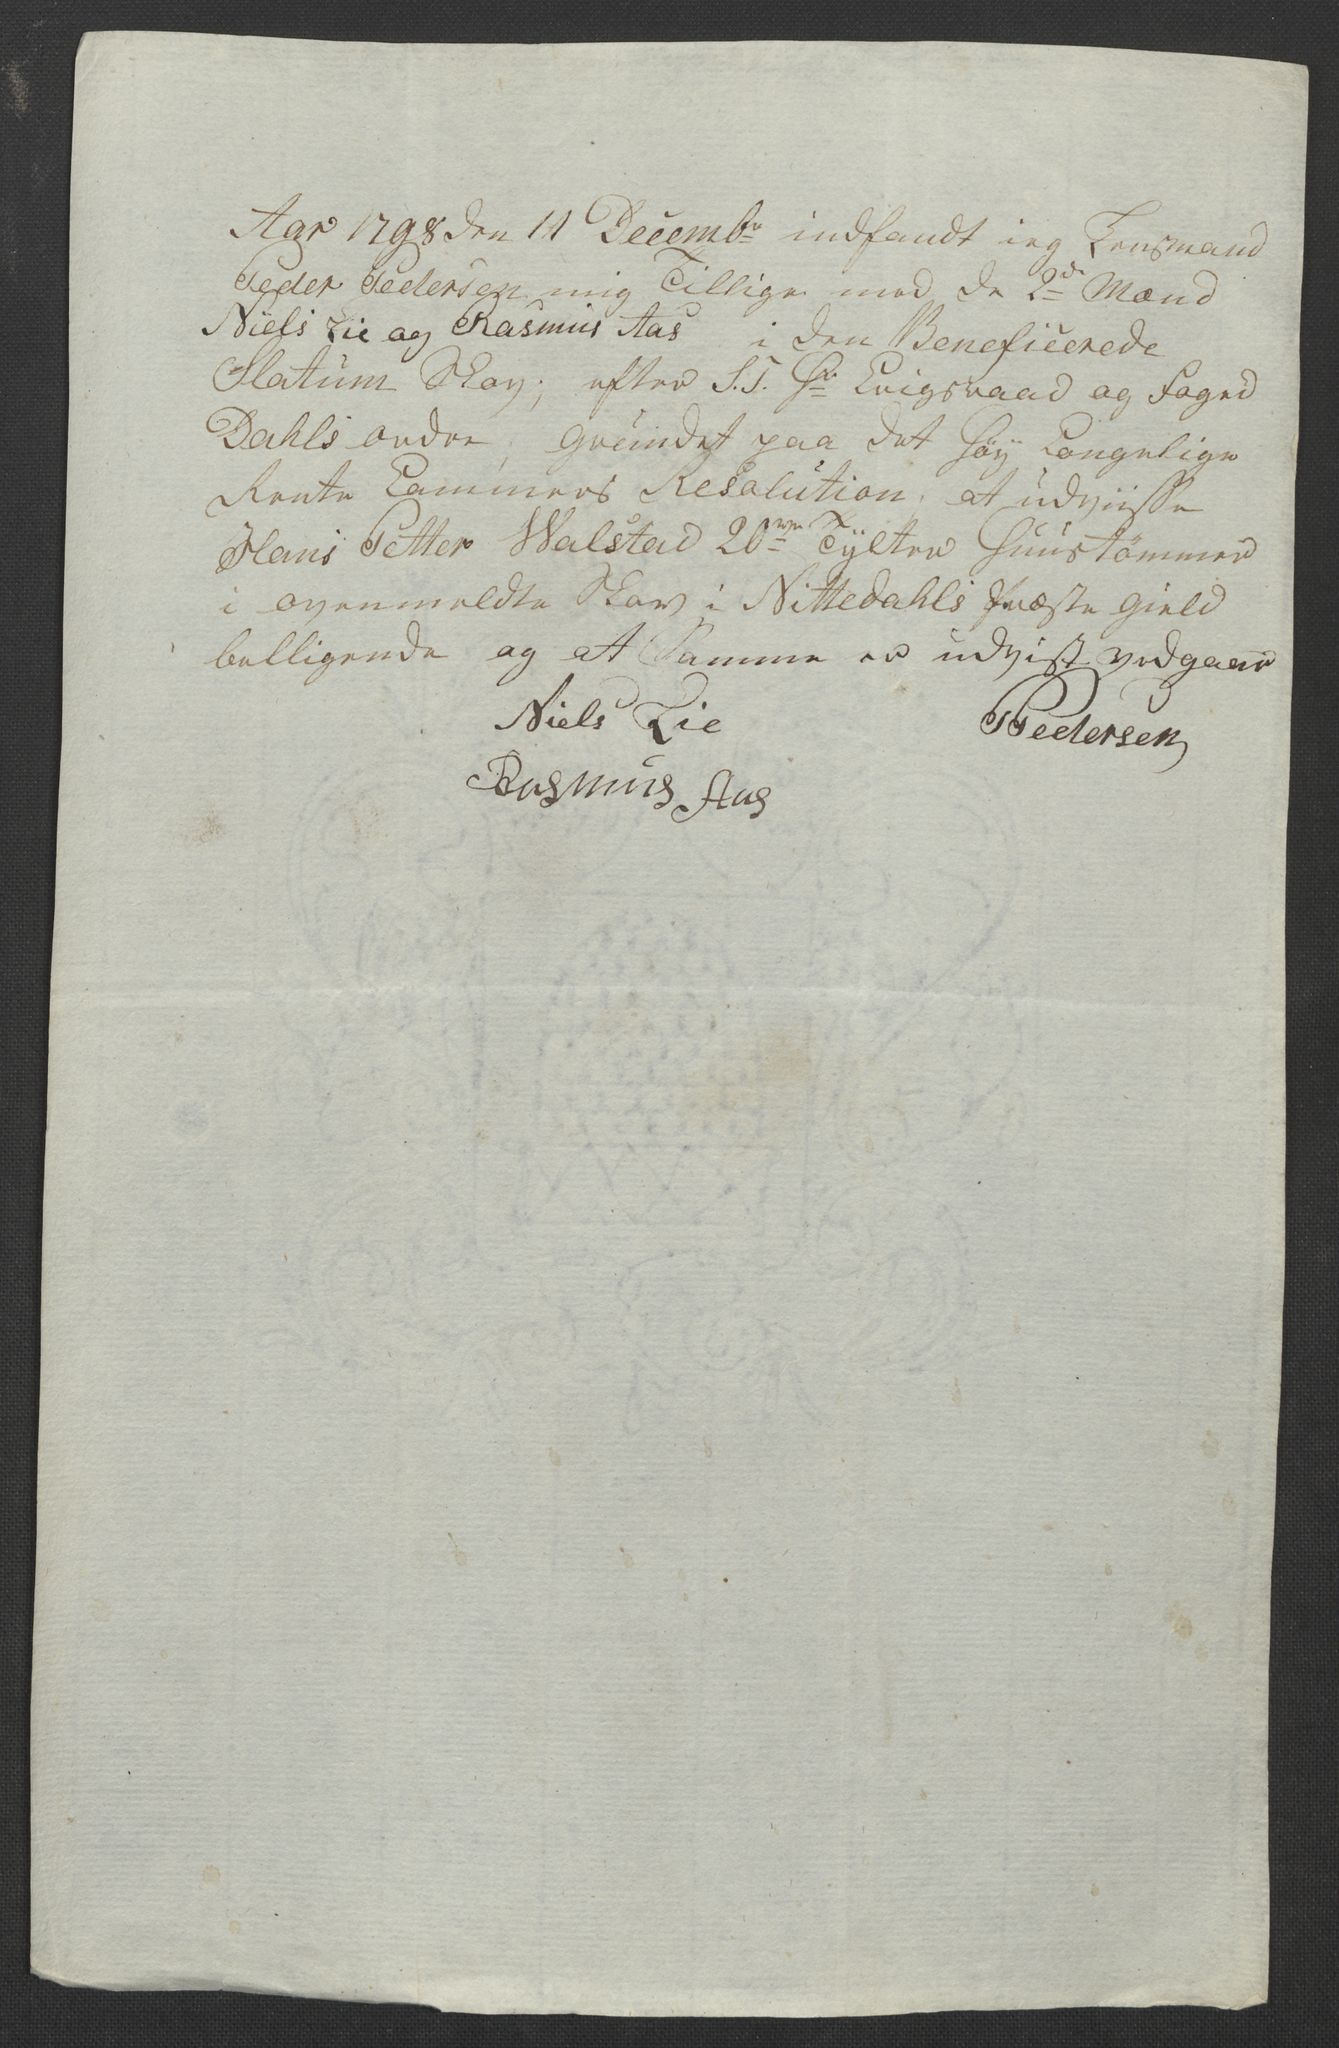 Aar 1798 den 11 Decembr indfandt ieg Lensmand
Peder Pedersen mig Tillige med de 2de Mænd
Niels Lie og Rasmus Aas i den Beneficerede
Slatum Skov, efter S.T. Hr Krigsraad og Foged
Dahls ordre, grundet paa det høy Kongelige
Rente Cammers Resolution, at udviisse
Hans Petter Walstad 20ve Tylter Huustømmer
i ovenmeldte Skov i Nittedahls Præste gield
belligende og at Samme er udvist vedgaar
Niels Lie Pedersen
Rasmus Aas